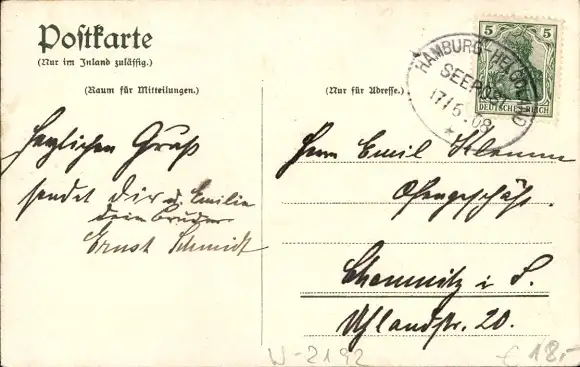 Postkarte
(Nur im Inland zulässig.)
(Raum für Mitteilungen.)
(Nur für Adresse.)
5 5
DEUTSCHES REICH
HAMBURG-HELGOLAND
SEEPOST
17/6.08
Herzlichen Gruß
sendet Dir u. Emilie
dein Bruder
Ernst Schmidt
Herrn Emil Klemm
Ofengeschäft.
Chemnitz i. S.
Uhlandstr. 20.
W-2192
€ 18,-